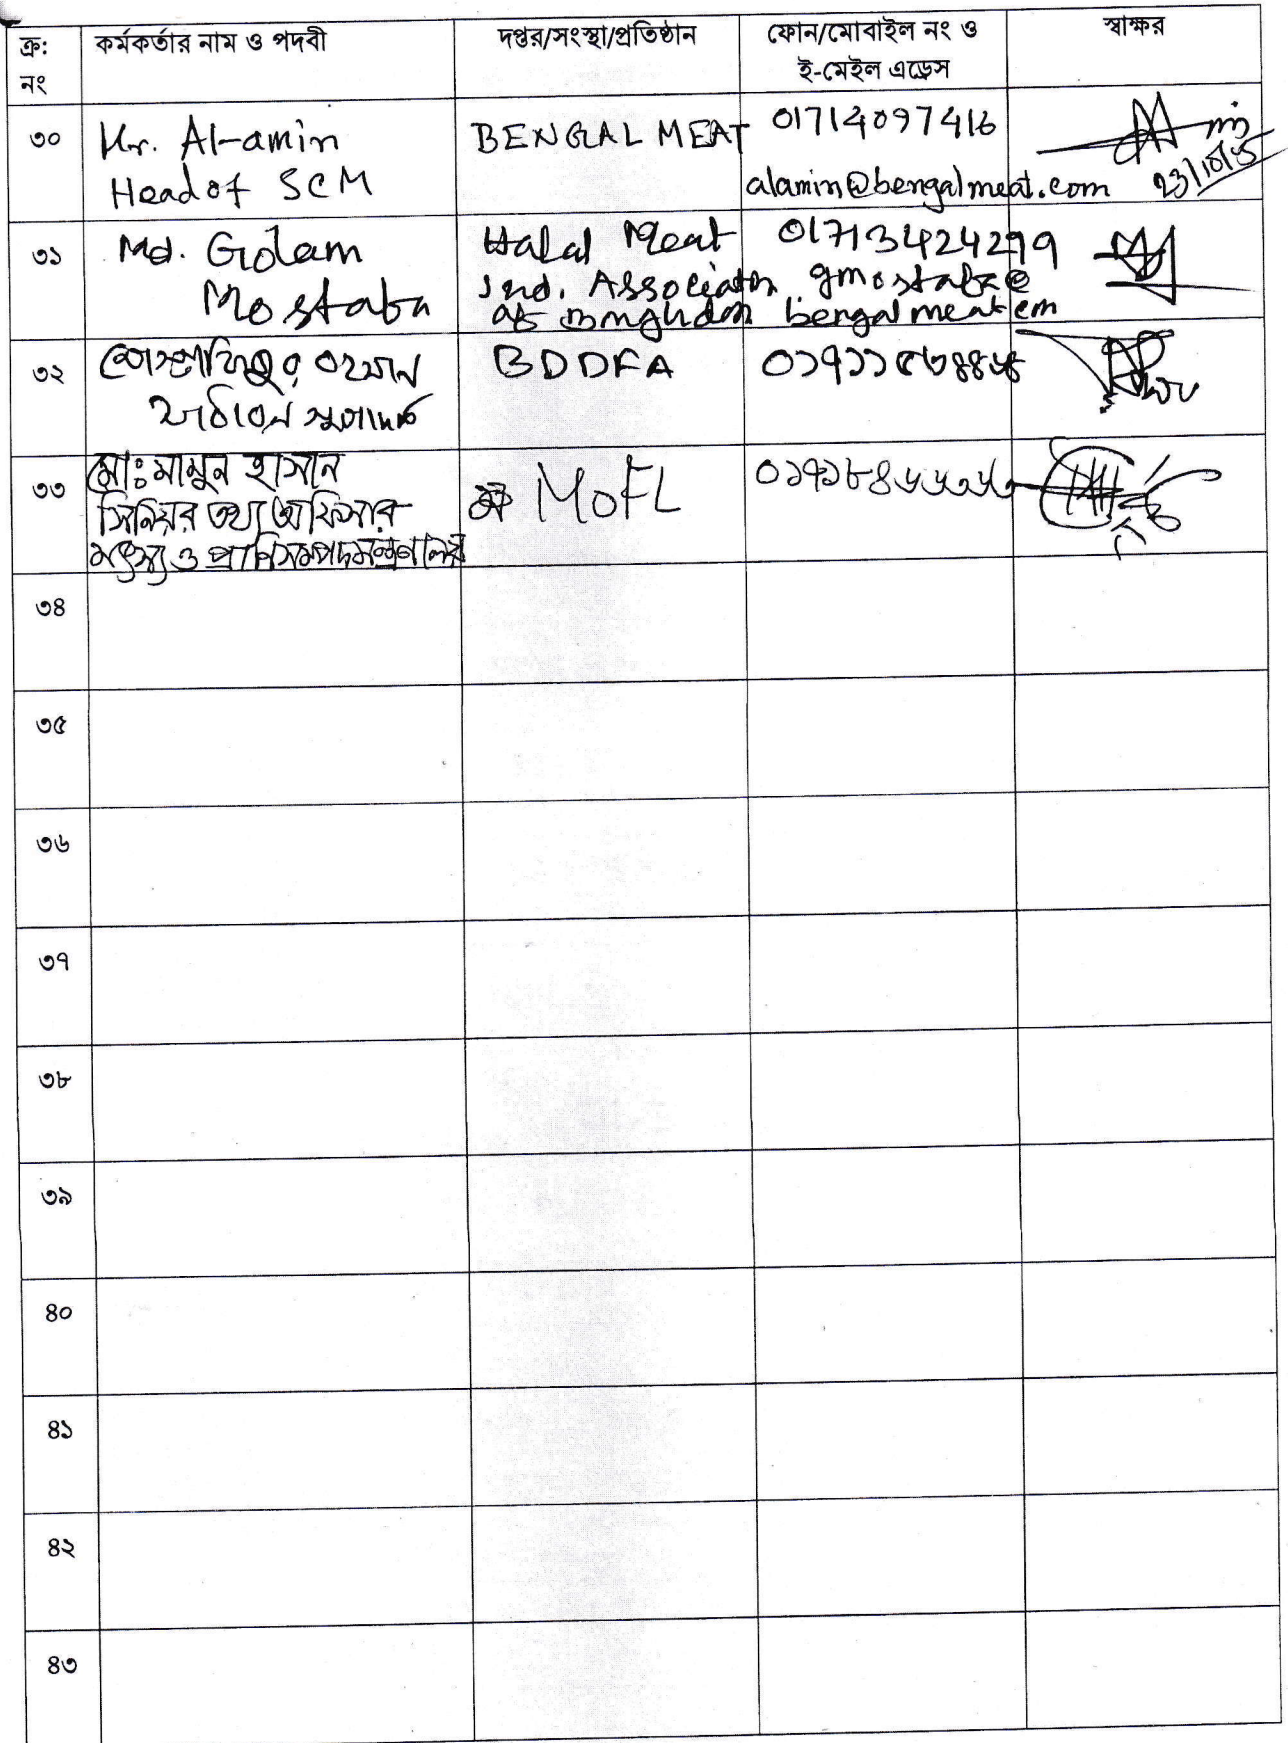 ক্র: নং
কর্মকর্তার নাম ও পদবী
দপ্তর/সংস্থা/প্রতিষ্ঠান
ফোন/মোবাইল নং ও
ই-মেইল এড্রেস
স্বাক্ষর
৩০
Mr. Al-amin
Head of SCM
BENGAL MEAT
01714097416
alamin@bengalmeat.com
৩১
Md. Golam
Mostafa
Halal Meat
Ind. Association
of
01713424299
gmostafa@
bengalmeat.com
৩২
রহমান
BDDFA
৩৩
মোঃ মামুন হাসান
সিনিয়র তথ্য অফিসার
মৎস্য ও প্রাণিসম্পদ মন্ত্রণালয়
MOFL
৩৪
৩৫
৩৬
৩৭
৩৮
৩৯
৪০
৪১
৪২
৪৩